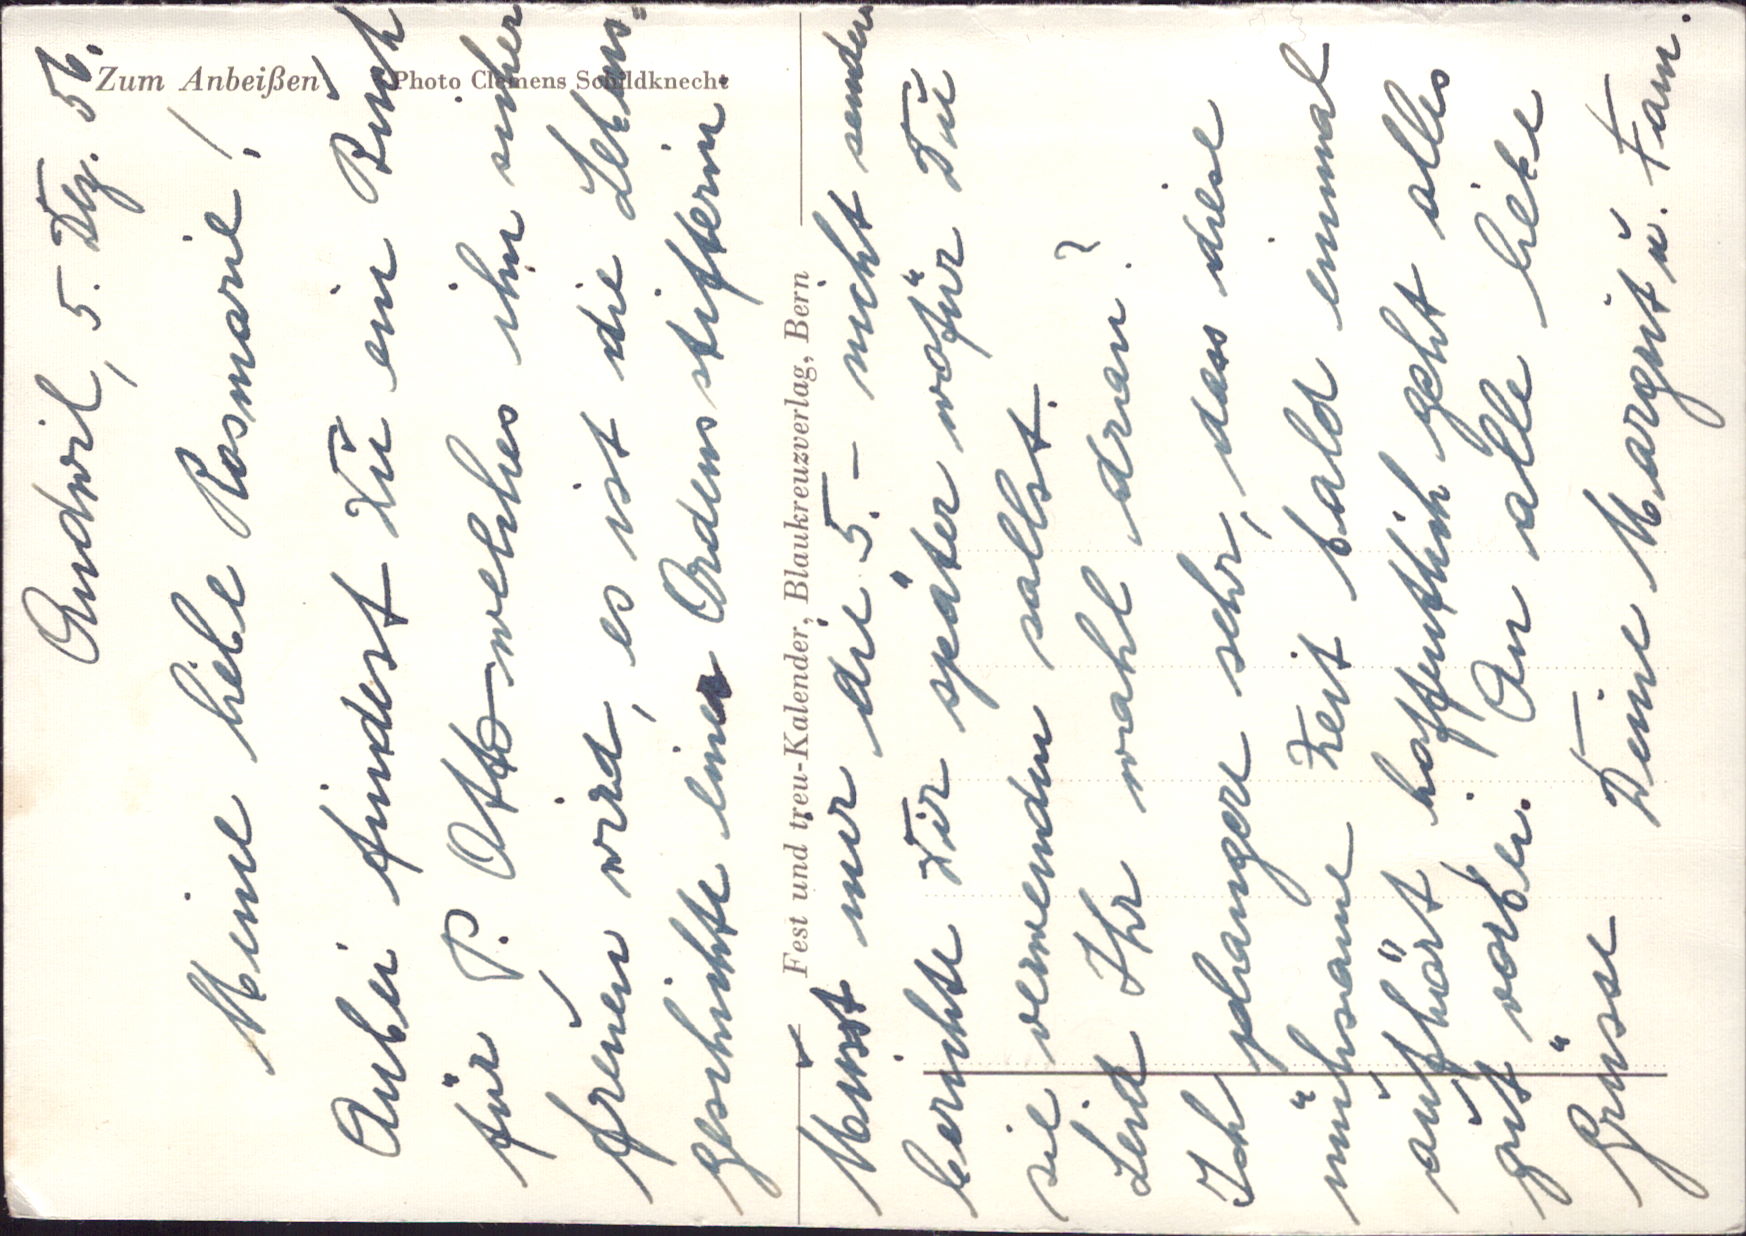 Zum Anbeißen
Photo Clemens Schildknecht
Fest und treu-Kalender, Blaukreuzverlag, Bern
Andwil, 5. Dez. 56.
Meine liebe Rosmarie!
Anbei findest Du ein Buch
für P. Otto welches ihn sicher
freuen wird, es ist die Lebens=
geschichte einer Ordensstifterin
Musst mir die 5.– nicht senden
berichte Dir später wofür Du
sie verwenden sollst.
Seid Ihr wohl dran?
Ich plangere sehr, dass diese
mühsame Zeit bald einmal
aufhört hoffentlich geht alles
gut vorbei. An alle liebe
Grüsse Deine Margrit u. Fam.